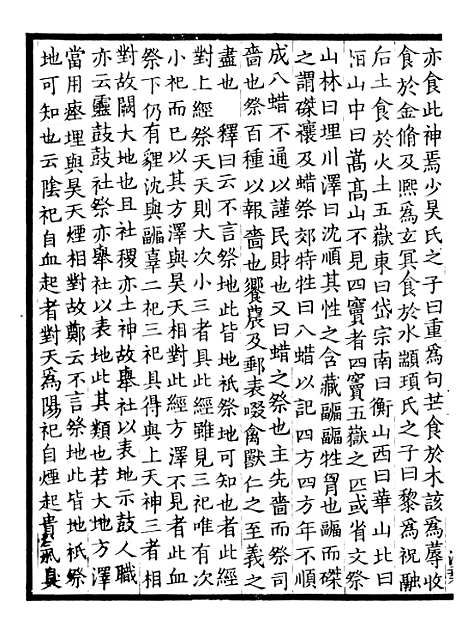 亦食此神焉少昊氏之子曰重爲句芒食於木該爲蓐收
食於金脩及熙爲玄冥食於水顓頊氏之子曰黎爲祝融
后土食於火土五嶽東曰岱宗南曰衡山西曰華山北曰
恒山中曰嵩高山不見四竇者四竇五嶽之匹或省文祭
山林曰埋川澤曰沈順其性之含藏疈疈牲胷也疈而磔
之謂磔禳及蜡祭郊特牲曰八蜡以記四方四方年不順
成八蜡不通以謹民財也又曰蜡之祭也主先嗇而祭司
嗇也祭百種以報嗇也饗農及郵表啜禽獸仁之至義之
盡也 釋曰云不言祭地此皆地祇祭地可知也者此經
對上經祭天天則大次小三者具此經雖見三祀唯有次
小祀而已以其方澤與昊天相對此經方澤不見者此血
祭下仍有貍沈與疈辜二祀三祀具得與上天神三者相
對故闕大地也且社稷亦土神故舉社以表地示鼓人職
亦云靁鼓鼓社祭亦舉社以表地此其類也若大地方澤
當用瘞埋與昊天煙相對故鄭云不言祭地此皆地祇祭
地可知也云陰祀自血起者對天爲陽祀自煙起貴氣臭